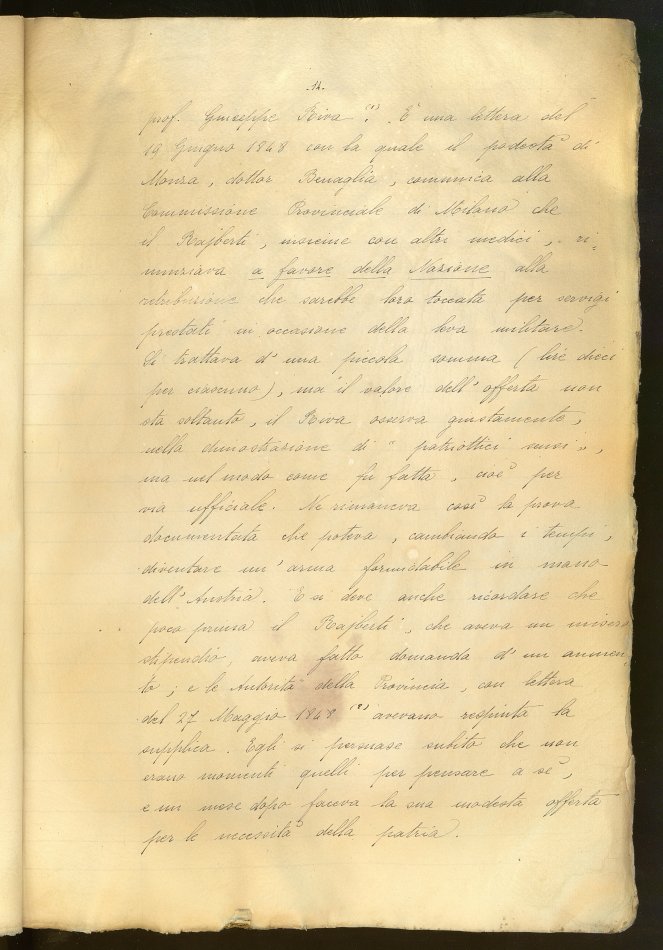 .14.
prof. Giuseppe Riva (1). È una lettera del
19 Giugno 1848 con la quale il podestà di
Monza, dottor Benaglia, comunica alla
Commissione Provinciale di Milano che
il Rajberti, insieme con altri medici, ri-
nunziava a favore della Nazione alla
retribuzione che sarebbe loro toccata per servigi
prestati in occasione della leva militare.
Si trattava d'una piccola somma (lire dieci
per ciascuno), ma il valore dell'offerta non
sta soltanto, il Riva osserva giustamente,
nella dimostrazione di "patriottici sensi",
ma nel modo come fu fatta, cioè per
via ufficiale. Ne rimaneva così la prova
documentata che poteva, cambiando i tempi,
diventare un'arma formidabile in mano
dell'Austria. E si deve anche ricordare che
poco prima il Rajberti, che aveva un misero
stipendio, aveva fatto domanda d'un aumen-
to; e le Autorità della Provincia, con lettera
del 27 Maggio 1848 (2) avevano respinta la
supplica. Egli si persuase subito che non
erano momenti quelli per pensare a sè,
e un mese dopo faceva la sua modesta offerta
per le necessità della patria.